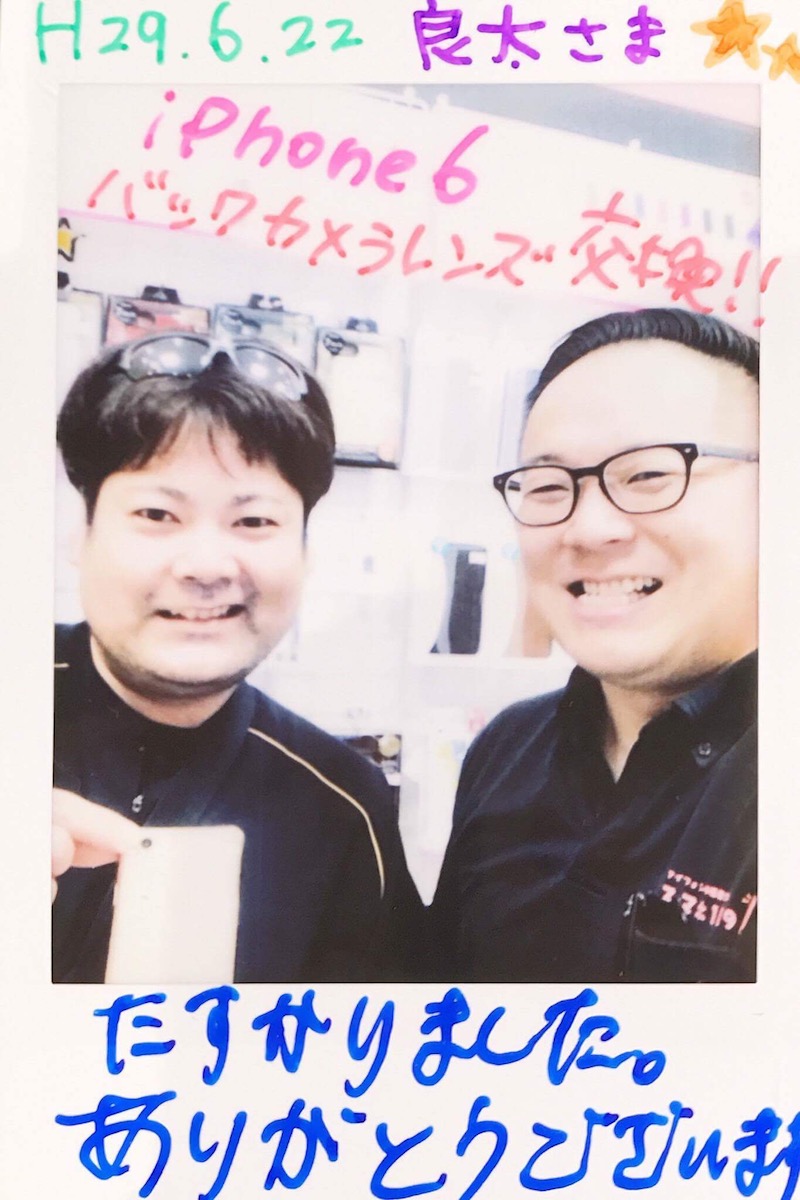 H29.6.22 良太さま
iPhone6
バックカメラレンズ交換!!
たすかりました。
ありがとうございます